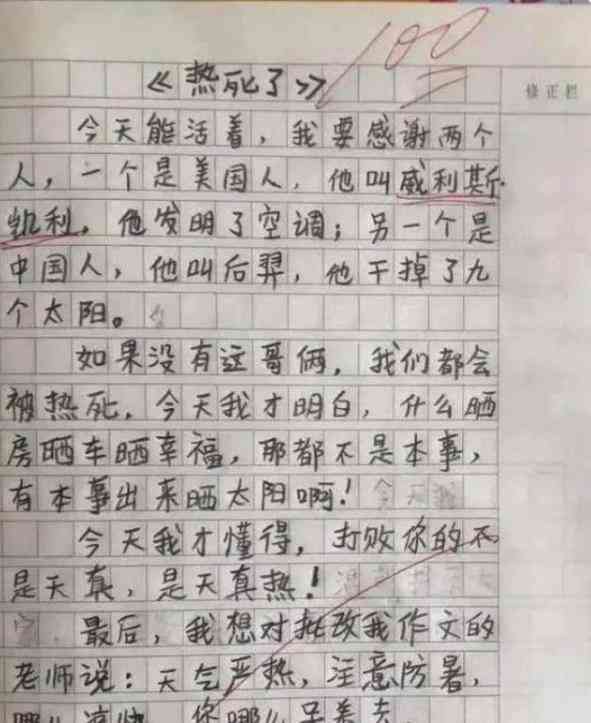 100
《热死了》
修正栏
今天能活着，我要感谢两个
人，一个是美国人，他叫威利斯·
凯利，他发明了空调；另一个是
中国人，他叫后羿，他干掉了九
个太阳。
如果没有这哥俩，我们都会
被热死，今天我才明白，什么晒
房晒车晒幸福，那都不是本事，
有本事出来晒太阳啊！
今天我才懂得，打败你的不
是天真，是天真热！
最后，我想对批改我作文的
老师说：天气严热，注意防暑，